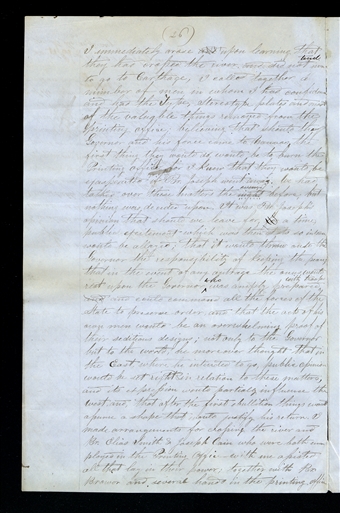 (26)
I immediately arose and upon learning that
they had crossed the river and did not intend
to go to Carthage, I called together a
number of men in whom I had confidence
and had the Type, stereotype plates and most
of the valuable things removed from the
Printing office, believing that should the
Governor and his force come to Nauvoo, the
first thing they would do would be to burn the
Printing office, for I knew that they would be
exasperated if they
talked over these matters the
nothing was decided upon. It was Joseph's
opinion that should we leave for a time,
public excitement which was then so intense
would be allayed; that it would throw on the
Governor the responsibility of keeping the peace
that in the event of any outrage the onus would
rest upon the Governor who was amply prepared with troops
and could command all the forces of the
State to preserve order and that the acts of his
own men would be an overwhelming proof of
their seditious designs, not only to the Governor
but to the world; he moreover thought that in
the East where he intended to go, public opinion
would be set right in relation to these matters,
and its expression would partially influence the
west and that after the first ebullition things would
assume a shape that would justify his return. I
made arrangements for crossing the river and
Mr. Elias Smith & Joseph Cain who were both em
ployed in the Printing office with me assisted
all that lay in their power, together with Bro
and several hands in the printing office